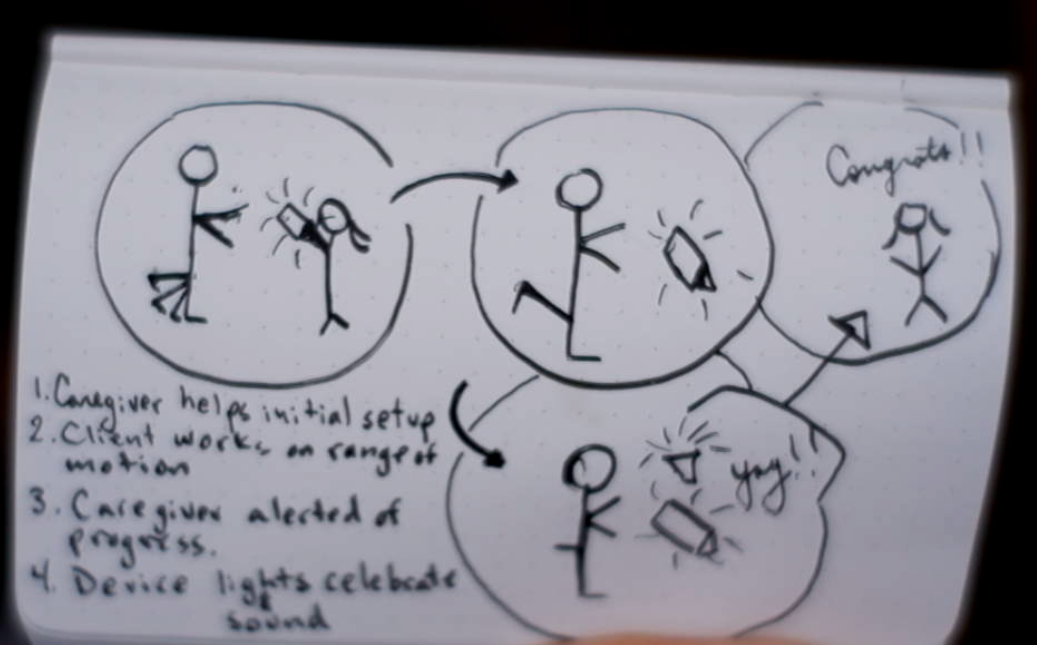 Congrats!!
1. Caregiver helps initial setup
2. Client works on range of
motion
3. Caregiver alerted of
progress.
4. Device lights celebrate
&
sound
yay!!